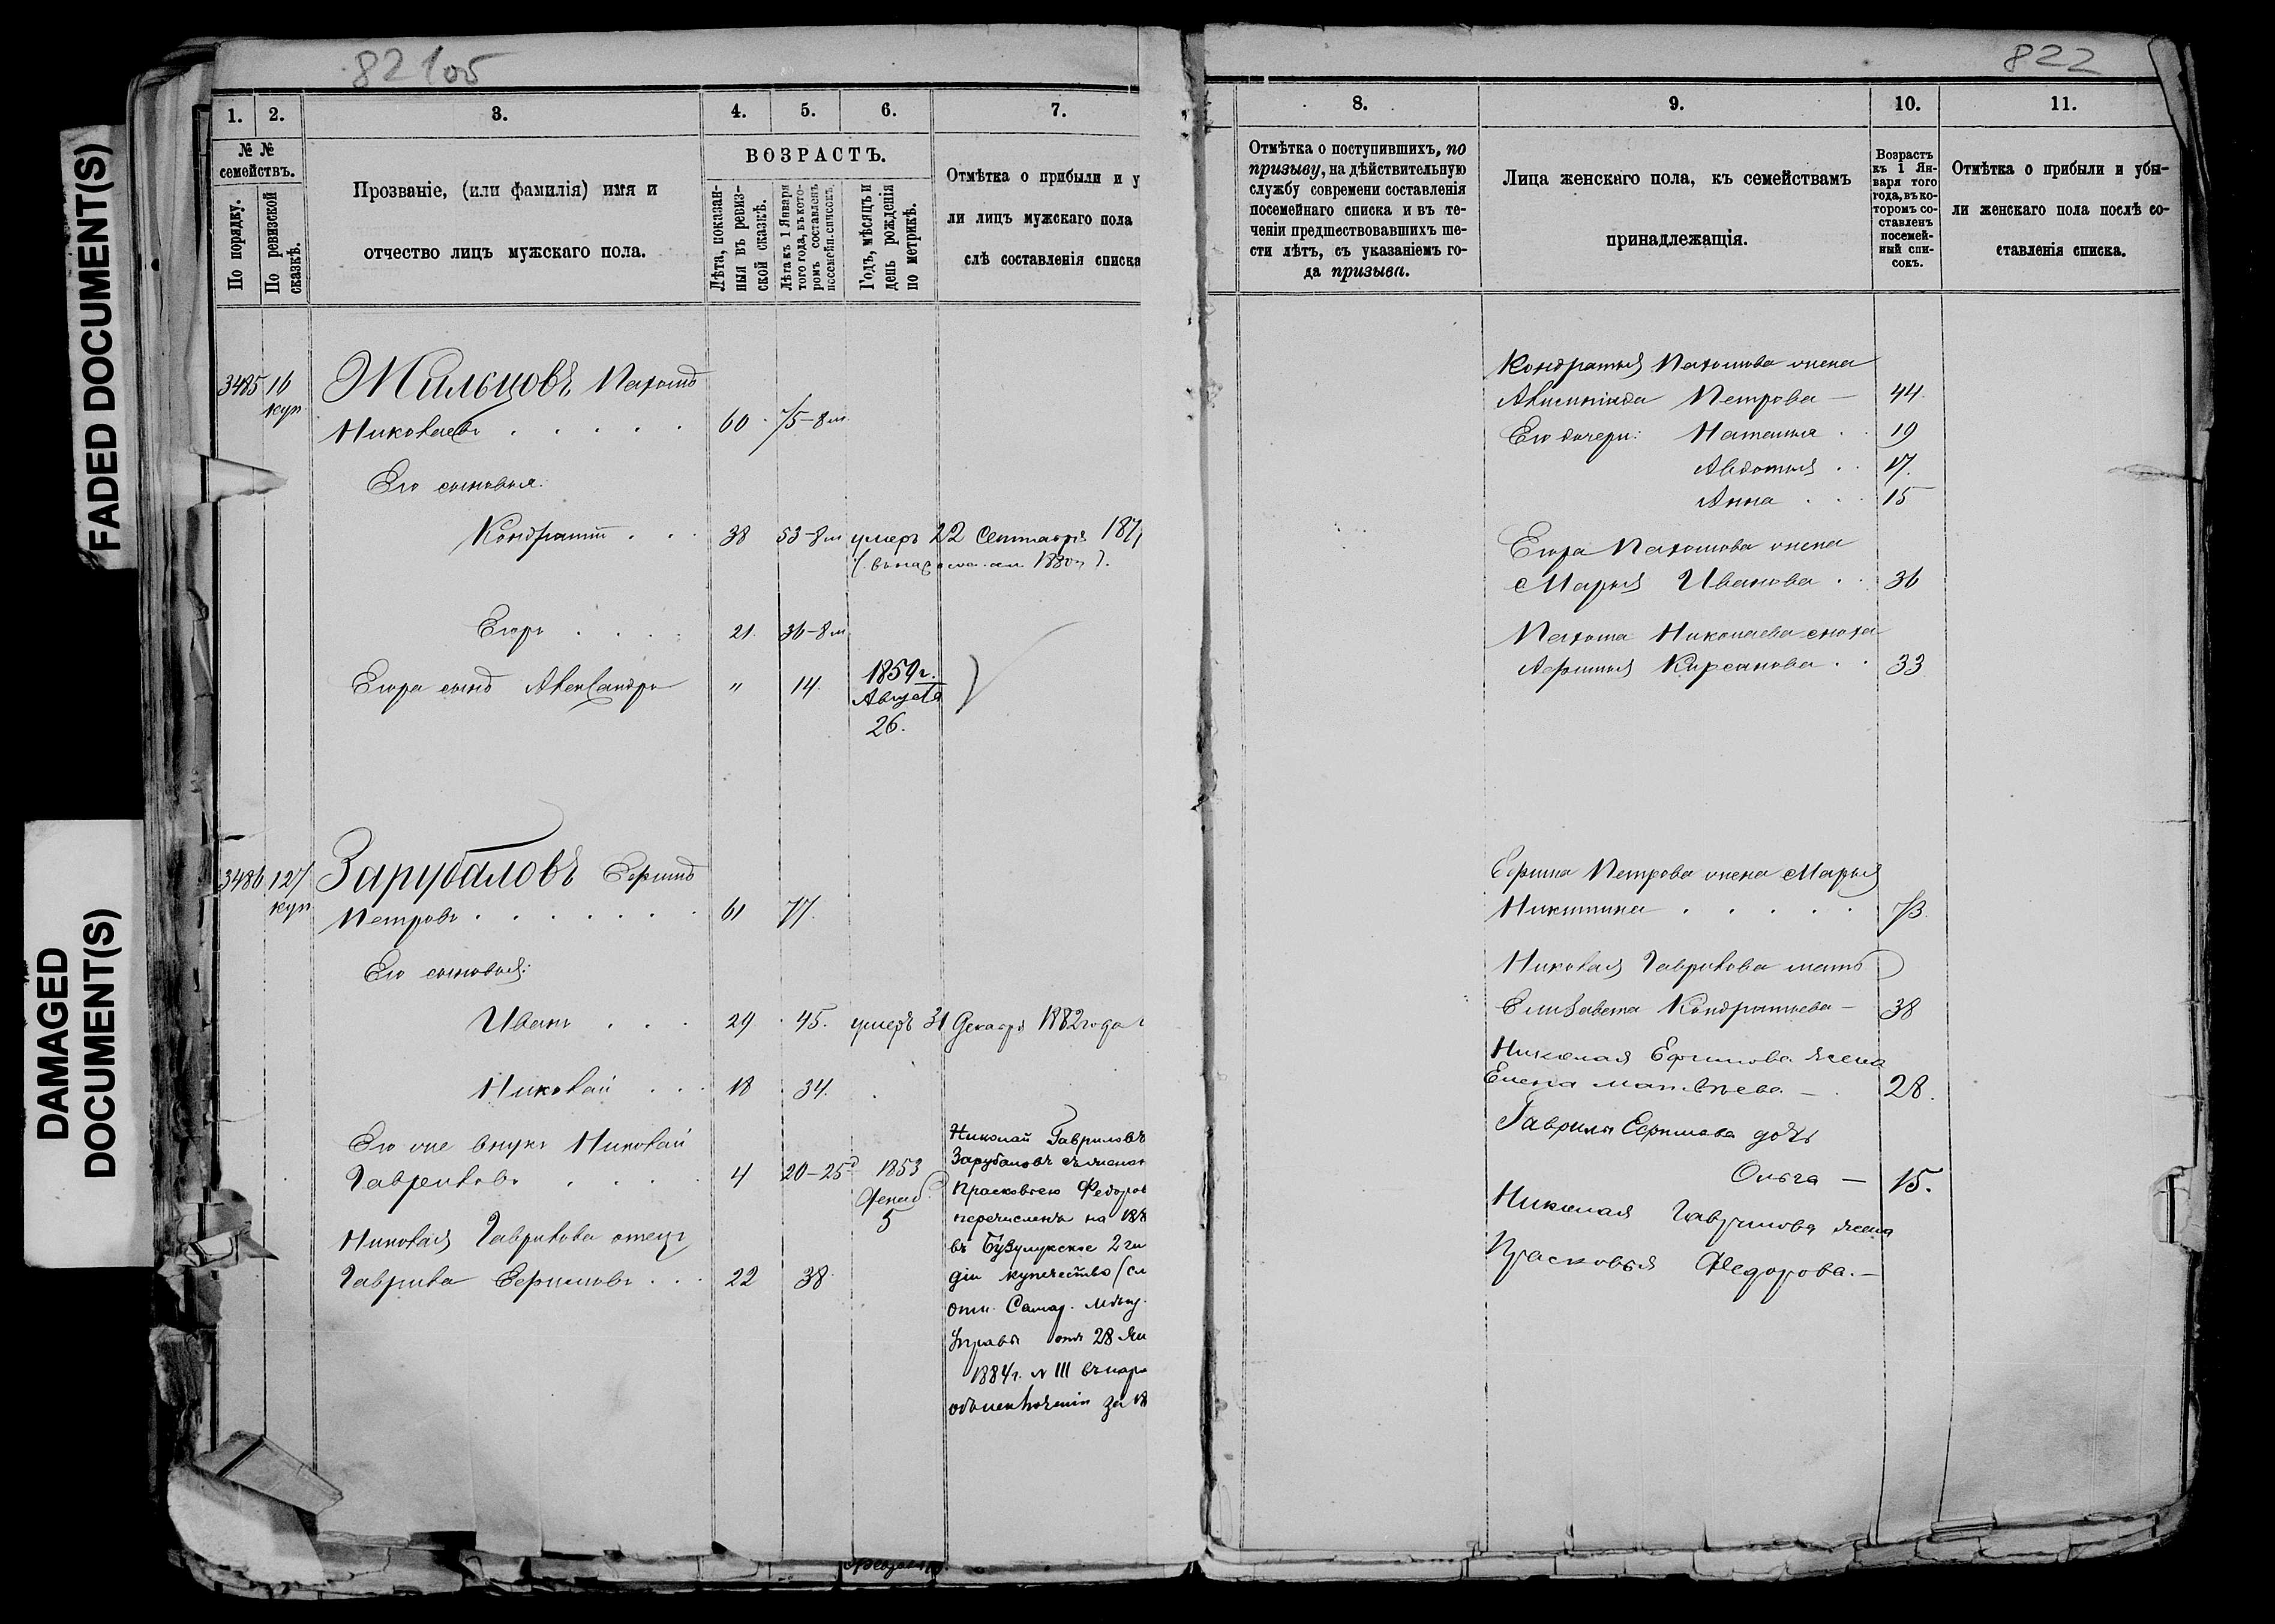 FADED DOCUMENT(S)
DAMAGED
DOCUMENT(S)
82105
1.
2.
3.
4.
5.
6.
7.
№ №
семействъ.
По порядку.
По ревизской
сказкѣ.
Прозваніе, (или фамилія) имя и
отчество лицъ мужскаго пола.
ВОЗРАСТЪ.
Лѣта, показан-
ныя въ ревиз-
ской сказкѣ.
Лѣта къ 1 Января
того года, въ кото-
ромъ составленъ
посемейн. списокъ.
Годъ, мѣсяцъ и
день рожденія
по метрикѣ.
Отмѣтка о прибыли и у
ли лицъ мужскаго пола
слѣ составленія списка
3485 16 Жильцовъ Пахомъ
куп
Николаевъ . . . . . 60 75-8 м.
Его сыновья:
Кондратій . . . 38 53-8 м умеръ 22 Сентября 187
1880
Егоръ . . . . 21. 36-8 м
Егора сынъ Александръ " 14. 1859 г.
Августа
26.
3486 127 Зарубаловъ Ефимъ
куп
Петровъ . . . . . . . 61 77.
Его сыновья:
Иванъ . . . 29 45. умеръ 31 Декабря 1882 года
Николай . . . 18 34.
Его же внукъ Николай
Гавриловъ . . . . 4 20-25 1853
5
Николая Гаврилова отецъ
Гаврила Ефимовъ . . . 22 38
Николай Гавриловъ
Зарубаловъ съ женою
Прасковьею Федоров
перечисленъ на 188
въ Бузулукское 2 ги
діи купечество (см
отн. Самар. Мѣщ.
Управы отъ 28 Ян
1884 г. № 111 въ наря
объ исключеніи за 18
822
8.
9.
10.
11.
Отмѣтка о поступившихъ, по
призыву, на дѣйствительную
службу современи составленія
посемейнаго списка и въ те-
ченіи предшествовавшихъ ше-
сти лѣтъ, съ указаніемъ го-
да призыва.
Лица женскаго пола, къ семействамъ
принадлежащія.
Возрастъ
къ 1 Ян-
варя того
года, въ ко-
торомъ со-
ставленъ
посемей-
ный спи-
сокъ.
Отмѣтка о прибыли и убы-
ли женскаго пола послѣ со-
ставленія списка.
Кондратья Пахомова жена
Петрова — 44.
Его дочери: Наталья . . 19
Авдотья . . 17.
Анна . . . 15
Егора Пахомова жена
Марья Иванова . . 36
Пахома Николаева сноха
Афимья Кирсанова . . 33
Ефима Петрова жена Марья
Никитина . . . . . 73.
Николая Гаврилова мать
Елизавета Кондратьева — 38
Николая Ефимова жена
Елена Матвѣева — . 28.
Гаврилы Ефимова дочь
Ольга — 15.
Николая Гаврилова жена
Прасковья Федорова. —